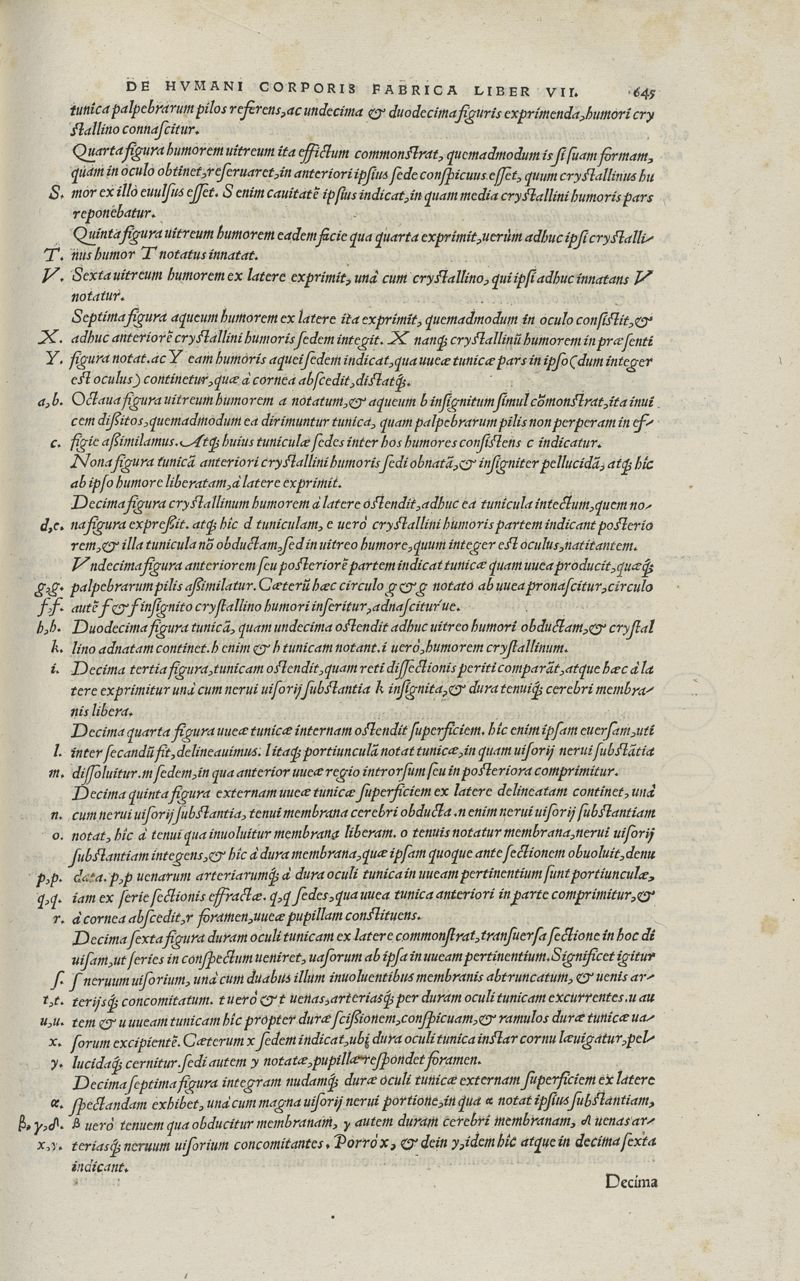 DE HVMANI CORPORIS FABRICA LIBER VII. 645
tunica palpebrarum pilos referens, ac undecima & duodecima figuris exprimenda, humori cry
stallino connascitur.
Quarta figura humorem uitreum ita effictum commonstrat, quemadmodum is si suam formam,
quam in oculo obtinet, reseruaret, in anteriori ipsius sede conspicuus esset, quum crystallinus hu
S. mor ex illo euulsus esset. S enim cauitatē ipsius indicat, in quam media crystallini humoris pars
reponebatur.
Quinta figura uitreum humorem eadem facie qua quarta exprimit, uerùm adhuc ipsi crystalli-
T. nus humor T notatus innatat.
V. Sexta uitreum humorem ex latere exprimit, unà cum crystallino, qui ipsi adhuc innatans V
notatur.
Septima figura aqueum humorem ex latere ita exprimit, quemadmodum in oculo consistit, &
X. adhuc anteriorē crystallini humoris sedem integit. X nanq; crystallinū humorem in præsenti
Y. figura notat. ac Y eam humoris aquei sedem indicat, qua uueæ tunicæ pars in ipso (dum integer
est oculus) continetur, quæ à cornea abscedit, distatq;.
a, b. Octaua figura uitreum humorem a notatum, & aqueum b insignitum simul cōmonstrat, ita inui
cem dißitos, quemadmodum ea dirimuntur tunica, quam palpebrarum pilis non perperam in ef-
c. figie aßimilamus. Atq; huius tuniculæ sedes inter hos humores consistens c indicatur.
Nona figura tunicā anteriori crystallini humoris sedi obnatā, & insigniter pellucidā, atq; hîc
ab ipso humore liberatam, à latere exprimit.
Decima figura crystallinum humorem à latere ostendit, adhuc ea tunicula intectum, quem no-
d, e. na figura expreßit. atq; hîc d tuniculam, e uerò crystallini humoris partem indicant posterio
rem, & illa tunicula nō obductam, sed in uitreo humore, quum integer est oculus, natitantem.
Vndecima figura anteriorem seu posteriorē partem indicat tunicæ quam uuea producit, quæq;
g, g. palpebrarum pilis aßimilatur. Cæterū hæc circulo g & g notato ab uuea pronascitur, circulo
f, f. autē f & f insignito crystallino humori inseritur, adnascitur'ue.
h, h. Duodecima figura tunicā, quam undecima ostendit adhuc uitreo humori obductam, & crystal
k. lino adnatam continet. h enim & h tunicam notant. i uerò, humorem crystallinum.
i. Decima tertia figura, tunicam ostendit, quam reti dissectionis periti comparāt, atque hæc à la
tere exprimitur unà cum nerui uisorij substantia k insignita, & dura tenuiq; cerebri membra-
nis libera.
Decima quarta figura uueæ tunicæ internam ostendit superficiem. hîc enim ipsam euersam, uti
l. inter secandū fit, delineauimus. l itaq; portiunculā notat tunicæ, in quam uisorij nerui substātia
m. dissoluitur. m sedem, in qua anterior uueæ regio introrsum seu in posteriora comprimitur.
Decima quinta figura externam uueæ tunicæ superficiem ex latere delineatam continet, unà
n. cum nerui uisorij substantia, tenui membrana cerebri obducta. n enim nerui uisorij substantiam
o. notat, hîc à tenui qua inuoluitur membrana liberam. o tenuis notatur membrana, nerui uisorij
substantiam integens, & hîc à dura membrana, quæ ipsam quoque ante sectionem obuoluit, denu
p, p. data. p, p uenarum arteriarumq; à dura oculi tunica in uueam pertinentium sunt portiunculæ,
q, q. iam ex serie sectionis effractæ. q, q sedes, qua uuea tunica anteriori in parte comprimitur, &
r. à cornea abscedit, r foramen, uueæ pupillam constituens.
Decima sexta figura duram oculi tunicam ex latere commonstrat, transuersa sectione in hoc di
uisam, ut series in conspectum ueniret, uasorum ab ipsa in uueam pertinentium. Significet igitur
s. s neruum uisorium, unà cum duabus illum inuoluentibus membranis abtruncatum, & uenis ar-
t, t. terijsq; concomitatum. t uerò & t uenas, arteriasq; per duram oculi tunicam excurrentes. u au
u, u. tem & u uueam tunicam hîc propter duræ scißionem, conspicuam, & ramulos duræ tunicæ ua-
x. sorum excipientē. Cæterum x sedem indicat, ubi dura oculi tunica instar cornu læuigatur, pel-
y. lucidaq; cernitur. sedi autem y notatæ, pupillæ respondet foramen.
Decima septima figura integram nudamq; duræ oculi tunicæ externam superficiem ex latere
α. spectandam exhibet, unà cum magna uisorij nerui portione, in qua α notat ipsius substantiam,
β, γ, δ. β uerò tenuem qua obducitur membranam, γ autem duram cerebri membranam, δ uenas ar-
x, y. teriasq; neruum uisorium concomitantes. Porrò x, & dein y, idem hîc atque in decima sexta
indicant.
Decima